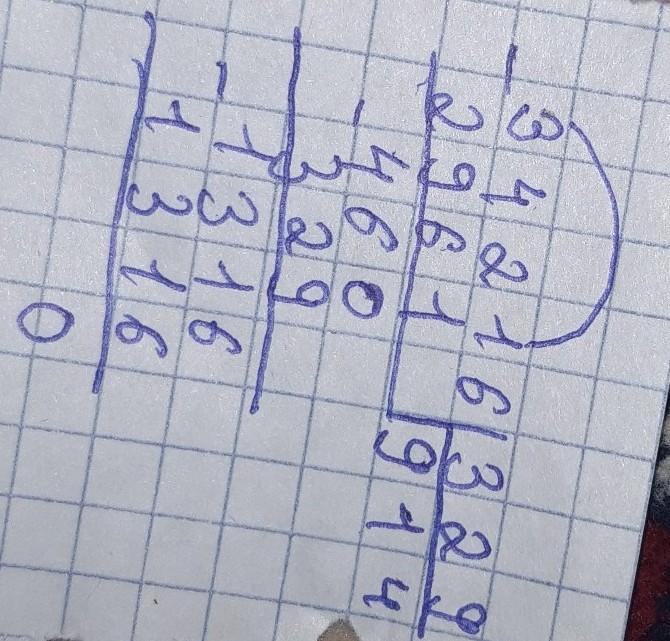 - 3 4 2 1 6 | 3 2 9
2 9 6 1 | 9 1 4
- 4 6 0
3 2 9
- 1 3 1 6
1 3 1 6
0